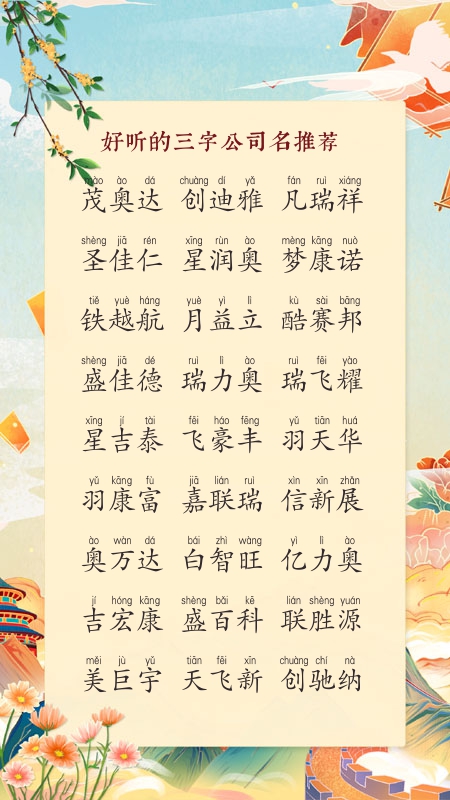 好听的三字公司名推荐
mào ào dá chuàng dí yǎ fán ruì xiáng
茂奥达 创迪雅 凡瑞祥
shèng jiā rén xīng rùn ào mèng kāng nuò
圣佳仁 星润奥 梦康诺
tiě yuè háng yuè yì lì kù sài bāng
铁越航 月益立 酷赛邦
shèng jiā dé ruì lì ào ruì fēi yào
盛佳德 瑞力奥 瑞飞耀
xīng jí tài fēi háo fēng yǔ tiān huá
星吉泰 飞豪丰 羽天华
yǔ kāng fù jiā lián ruì xìn xīn zhǎn
羽康富 嘉联瑞 信新展
ào wàn dá bái zhì wàng yì lì ào
奥万达 白智旺 亿力奥
jí hóng kāng shèng bǎi kē lián shèng yuán
吉宏康 盛百科 联胜源
měi jù yǔ tiān fēi xīn chuàng chí nà
美巨宇 天飞新 创驰纳